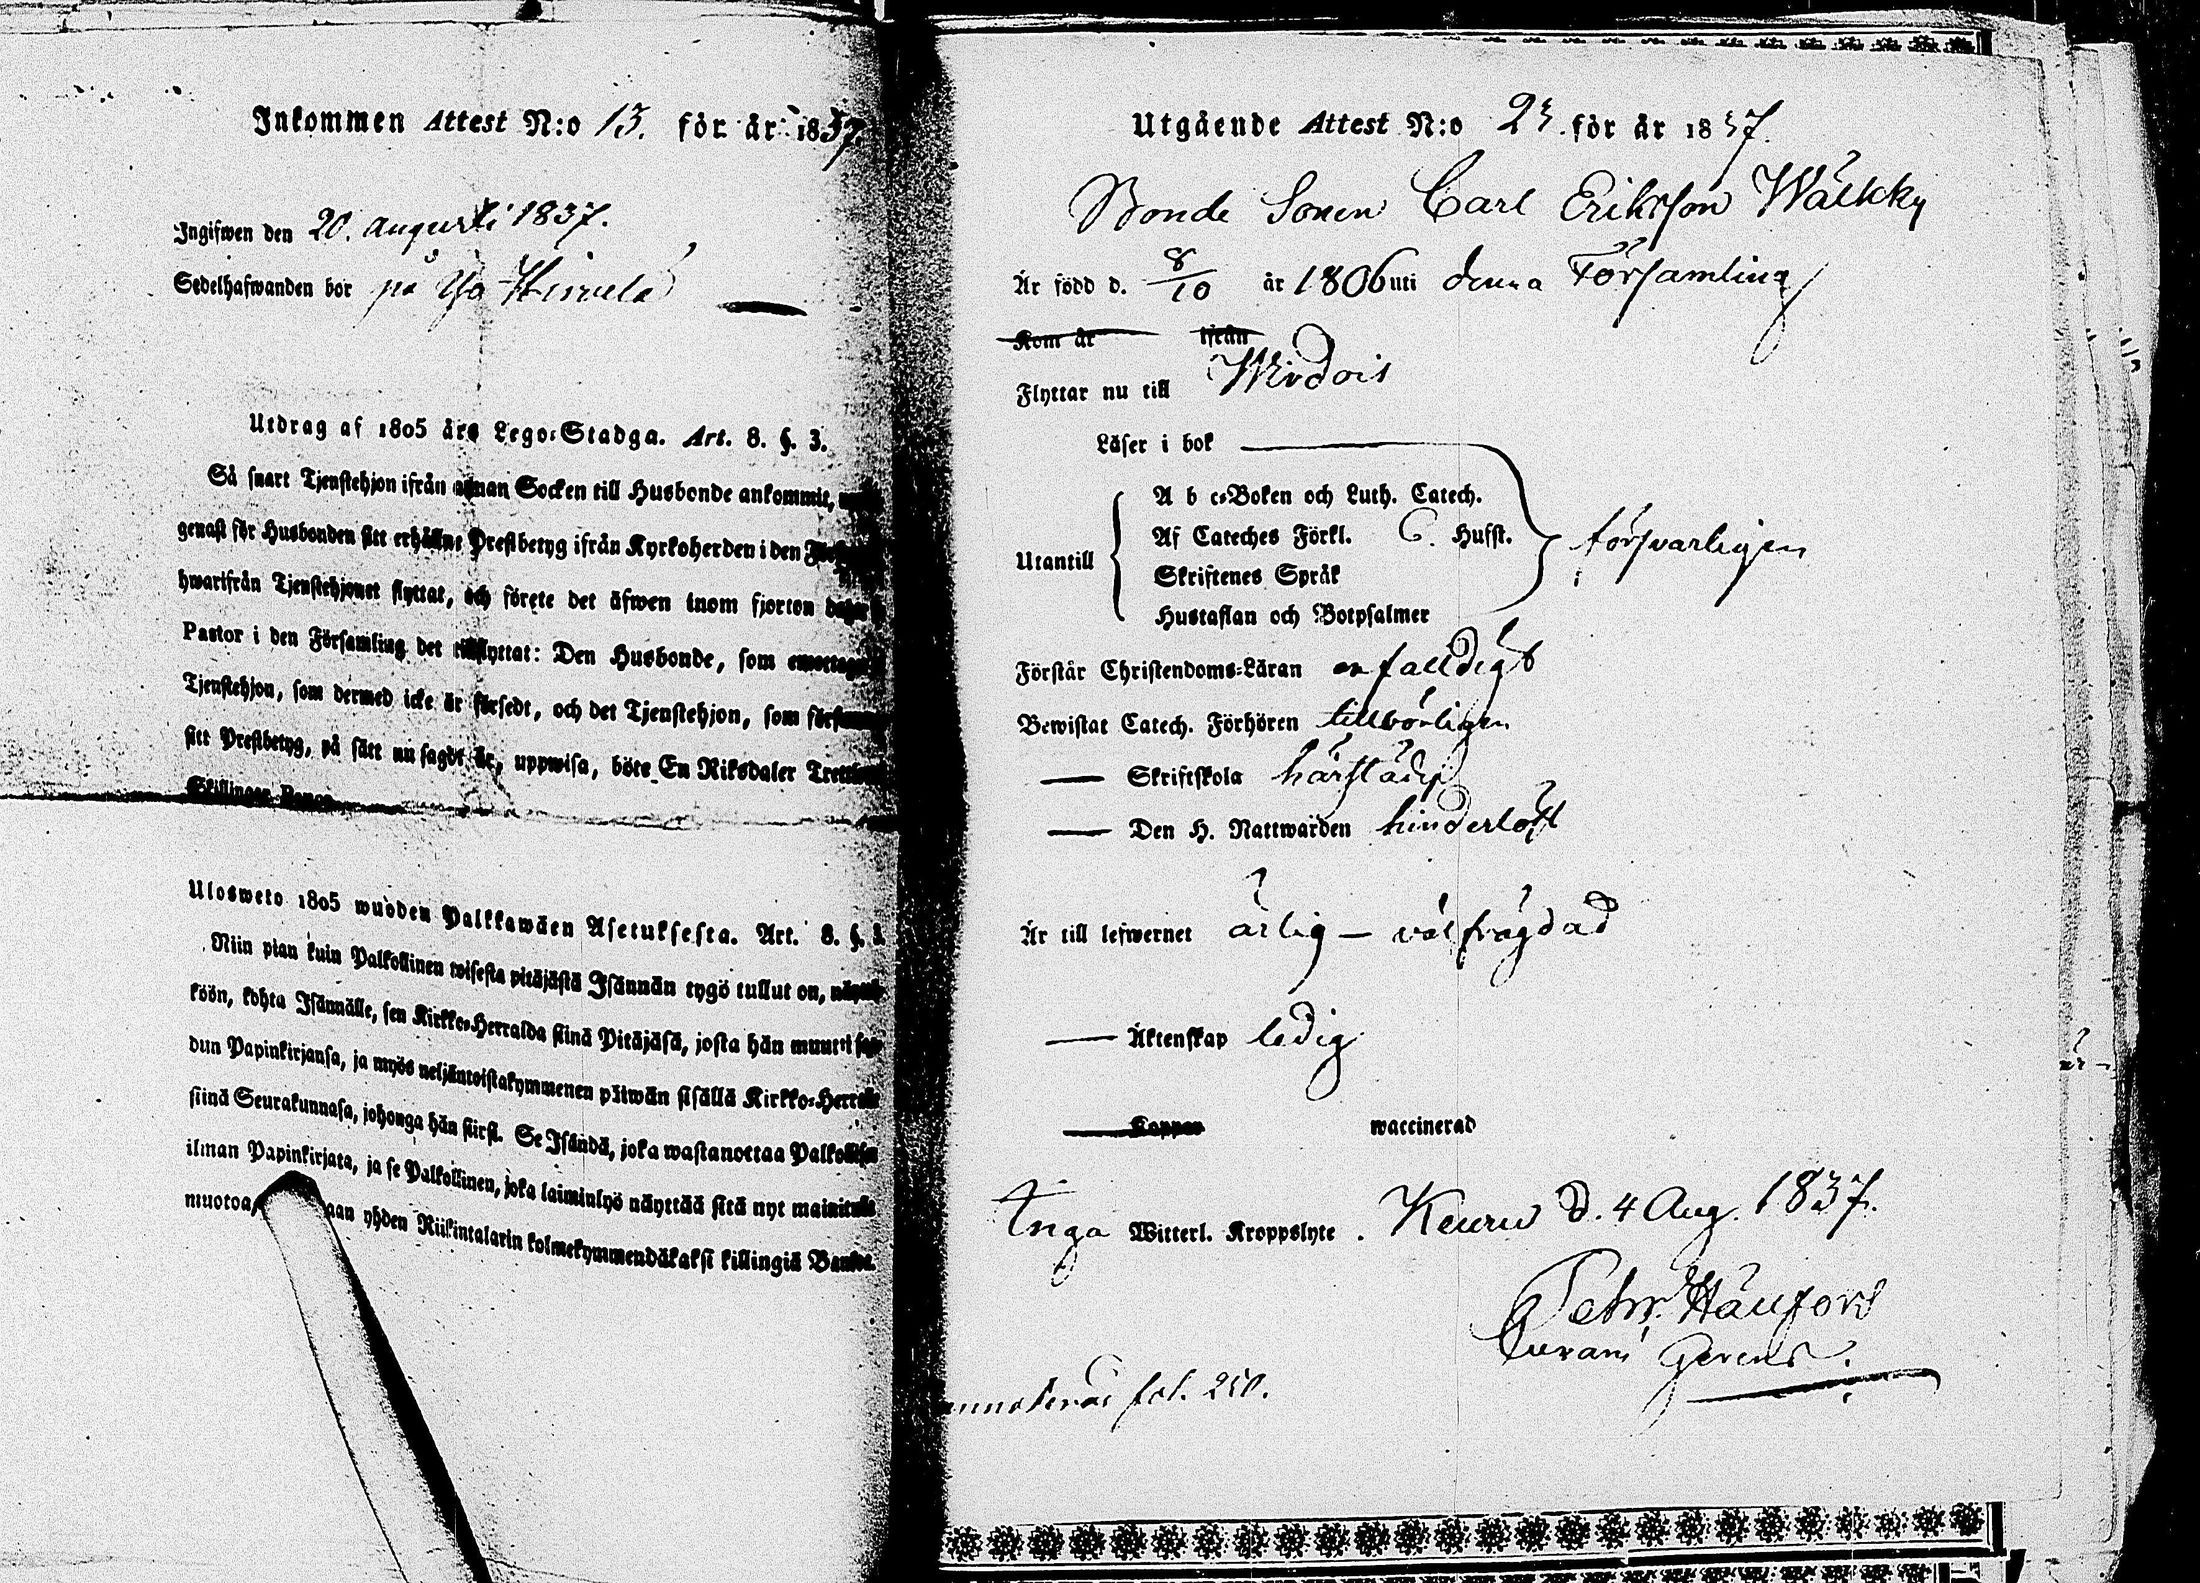 Inkommen Attest N:o 13. för år 1837.
Ingifwen den 20. augusti 1837.
Sedelhafwanden bor på Yo Hirvelä
Utdrag af 1805 års Lego-Stadga. Art. 8. §. 3.
Så snart Tjenstehjon ifrån annan Socken till Husbonde ankommit,
genast för Husbonden sitt erhållne Prestbetyg ifrån Kyrkoherden i den
hwarifrån Tjenstehjonet flyttat, och förete det äfwen inom fjorton dagar
Pastor i den Församling det tillflyttat: Den Husbonde, som emottager
Tjenstehjon, som dermed icke är försedt, och det Tjenstehjon, som
sitt Prestbetyg, på sätt nu sagdt är, uppwisa, böte En Riksdaler
Skillingar Banco
Ulosweto 1805 wuoden Palkkawäen Asetuksesta. Art. 8. §. 3.
Niin pian kuin Palkollinen wisesta pitäjästä Isännän tygö tullut on,
köön, kohta Isännälle, sen Kirkko-Herralda siinä Pitäjäsä, josta hän muutti
dun Papinkirjansa, ja myös neljäntoistakymmenen päiwän sisällä Kirkko-Herralle
siinä Seurakunnasa, johonga hän siirsi. Se Isändä, joka wastanottaa Palkollisen
ilman Papinkirjata, ja se Palkollinen, joka laiminlyö näyttää sitä nyt mainitulla
muotoa, yhden Riikintalarin kolmekymmendäkaksi killingiä Bankoa.
Utgående Attest N:o 23. för år 1837.
Bonde Sonen Carl Eriksson Wälkky
Är född d. 8/10 år 1806 uti denna Församling
Kom år ifrån
Flyttar nu till Wirdois
Läser i bok
A b c-Boken och Luth. Catech.
Af Cateches Förkl. C. Hufst. försvarligen
Utantill
Skriftenes Språk
Hustaflan och Botpsalmer
Förstår Christendoms-Läran enfalldigt
Bewistat Catech. Förhören tillbörligen
— Skriftskola härstädes
— Den H. Nattwarden hinderlöst
Är till lefwernet ärlig — välfrägdad
— Äktenskap ledig
— Koppor waccinerad
Inga Witterl. Kroppslyte. Keuru d. 4 Aug. 1837.
Petr. Hällfors
Curam Gerens.
fol. 250.